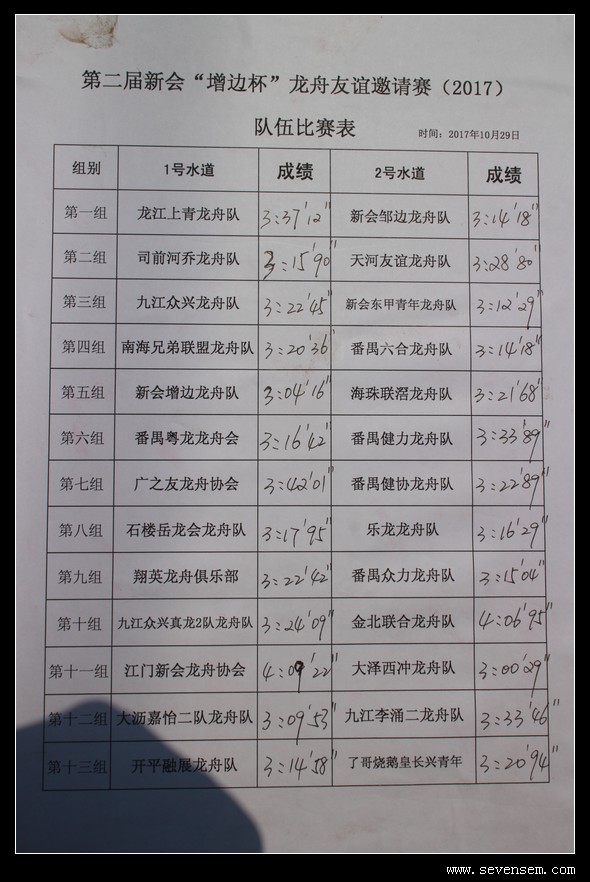 第二届新会“增边杯”龙舟友谊邀请赛（2017）
队伍比赛表
时间：2017年10月29日
组别 1号水道 成绩 2号水道 成绩
第一组 龙江上青龙舟队 3:37'12" 新会邹边龙舟队 3:14'18"
第二组 司前河乔龙舟队 3:15'90" 天河友谊龙舟队 3:28'80"
第三组 九江众兴龙舟队 3:22'45" 新会东甲青年龙舟队 3:12'29"
第四组 南海兄弟联盟龙舟队 3:20'36" 番禺六合龙舟队 3:14'18"
第五组 新会增边龙舟队 3:04'16" 海珠联滘龙舟队 3:21'68"
第六组 番禺粤龙龙舟会 3:16'42" 番禺健力龙舟队 3:33'89"
第七组 广之友龙舟协会 3:42'01" 番禺健协龙舟队 3:22'89"
第八组 石楼岳龙会龙舟队 3:17'95" 乐龙龙舟队 3:16'29"
第九组 翔英龙舟俱乐部 3:22'42" 番禺众力龙舟队 3:15'04"
第十组 九江众兴真龙2队龙舟队 3:24'09" 金北联合龙舟队 4:06'95"
第十一组 江门新会龙舟协会 4:09'22" 大泽西冲龙舟队 3:00'29"
第十二组 大沥嘉怡二队龙舟队 3:09'53" 九江李涌二龙舟队 3:33'46"
第十三组 开平融展龙舟队 3:14'58" 了哥烧鹅皇长兴青年 3:20'94"
www.sevensem.com